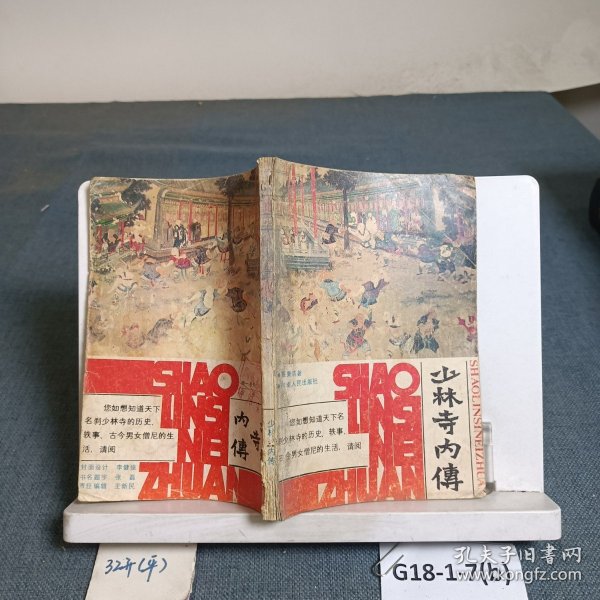 SHAO
LINSI
NEI
ZHUAN
内
傳
寺
您如想知道天下
名刹少林寺的历史、
轶事、古今男女僧尼的生
活，请阅
封面设计 李健强
书名题字 张磊
责任编辑 王新民
人民出版社
SHAO
LINSI
NEI
ZHUAN
您如想知道天下名
刹少林寺的历史、轶事、
古今男女僧尼的生活，请阅
少林寺内傳
SHAOLINSINEIZHUAN
32开(平)
G18-1-7(b)
孔夫子旧书网
www.kongfz.com